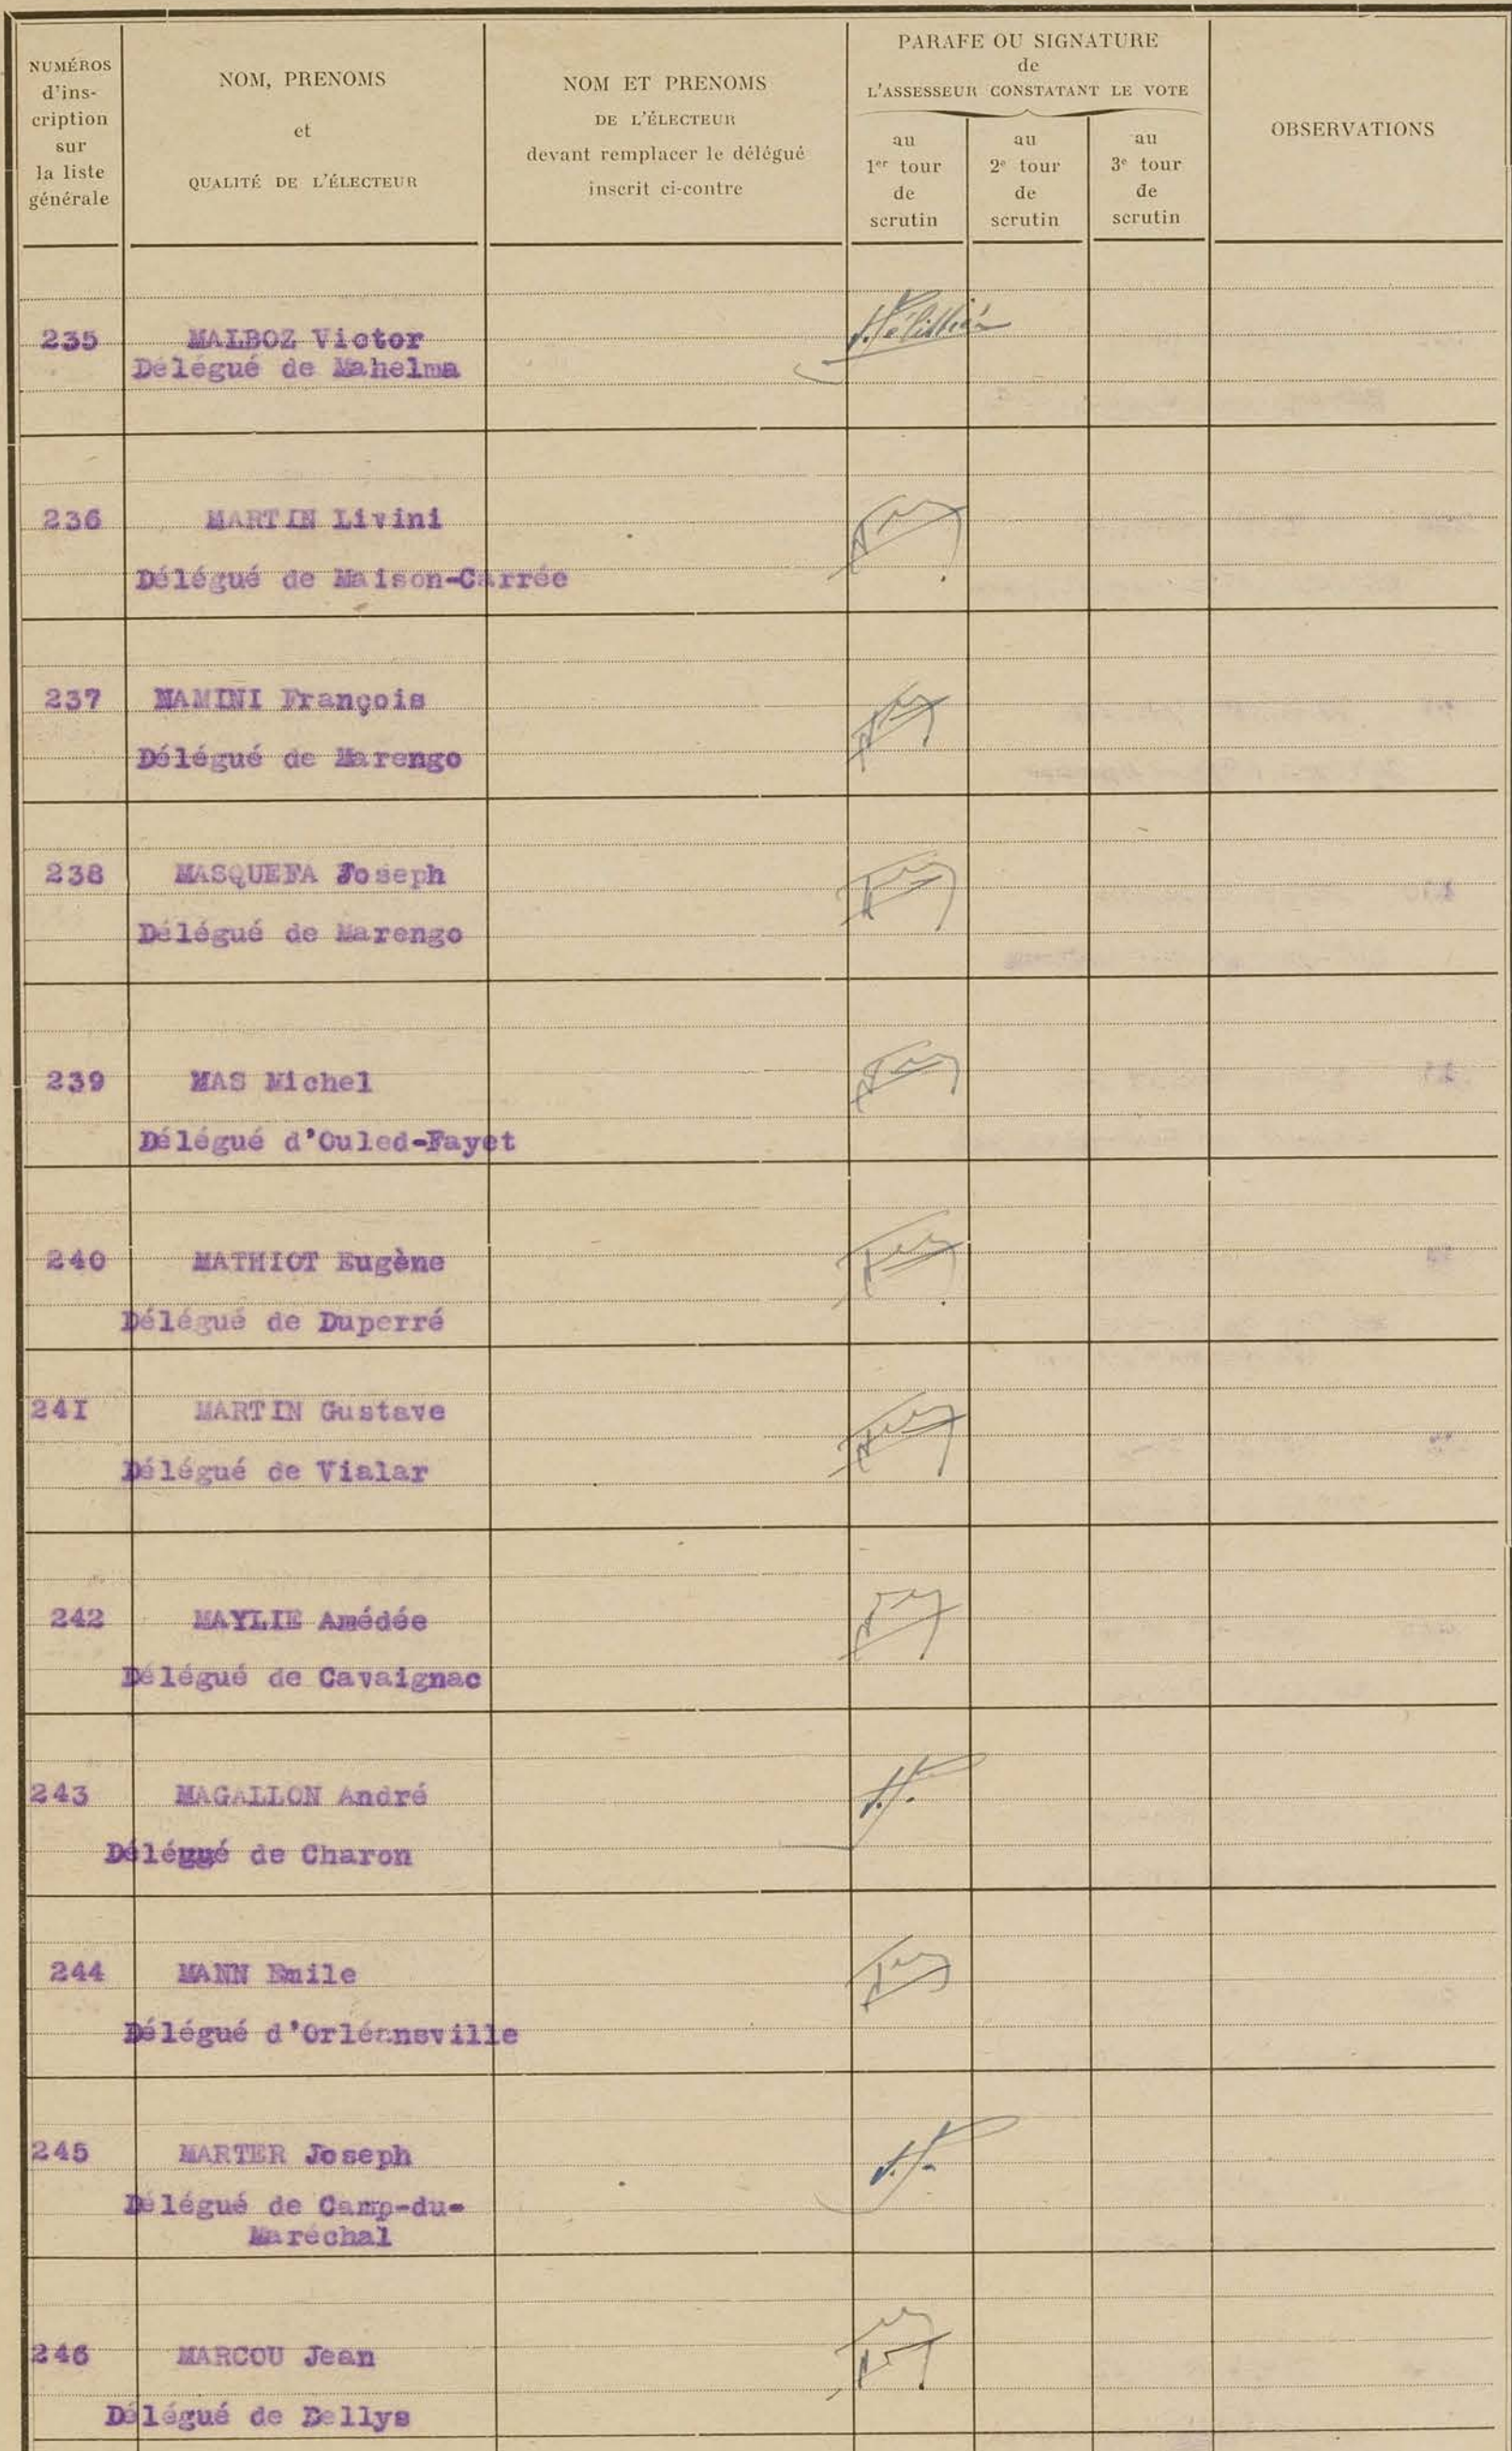 NUMÉROS
d'ins-
cription
sur
la liste
générale
NOM, PRENOMS
et
QUALITÉ DE L'ÉLECTEUR
NOM ET PRENOMS
DE L'ÉLECTEUR
devant remplacer le délégué
inscrit ci-contre
PARAFE OU SIGNATURE
de
L'ASSESSEUR CONSTATANT LE VOTE
au
1er tour
de
scrutin
au
2e tour
de
scrutin
au
3e tour
de
scrutin
OBSERVATIONS
235 MALBOZ Victor
Délégué de Mahelma
236 MARTIN Livini
Délégué de Maison-Carrée
237 MAMINI François
Délégué de Marengo
238 MASQUEFA Joseph
Délégué de Marengo
239 MAS Michel
Délégué d'Ouled-Fayet
240 MATHIOT Eugène
Délégué de Duperré
24I MARTIN Gustave
Délégué de Vialar
242 MAYLIE Amédée
Délégué de Cavaignac
243 MAGALLON André
Délégué de Charon
244 MANN Emile
Délégué d'Orléansville
245 MARTER Joseph
Délégué de Camp-du-
Maréchal
246 MARCOU Jean
Délégué de Dellys